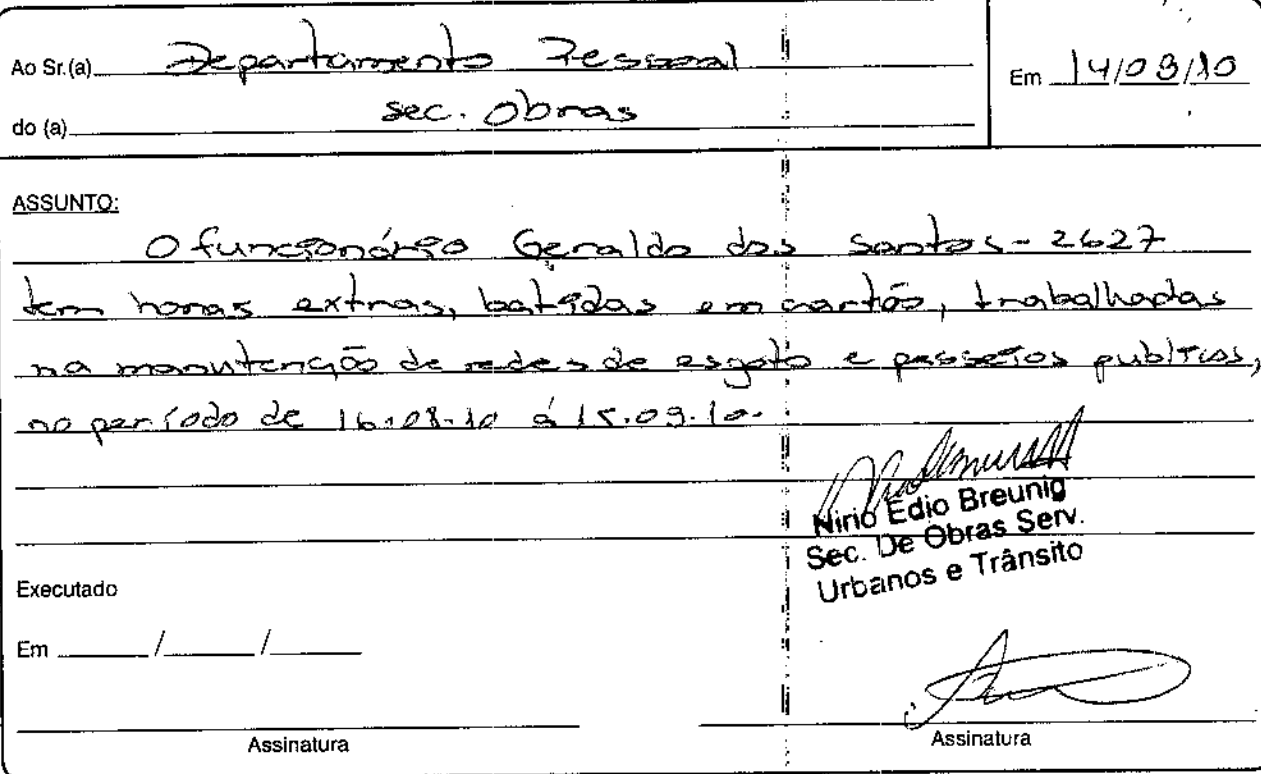 Ao Sr.(a) Departamento Pessoal
Em 14/09/10
do (a) sec. Obras
ASSUNTO:
O funcionário Geraldo dos Santos - 2627
tem horas extras, batidas em cartão, trabalhadas
na manutenção de redes de esgoto e passeios publicos,
no período de 16.08.10 á 15.09.10.
Nirio Edio Breunig
Sec. De Obras Serv.
Urbanos e Trânsito
Executado
Em ____/____/____
Assinatura
Assinatura